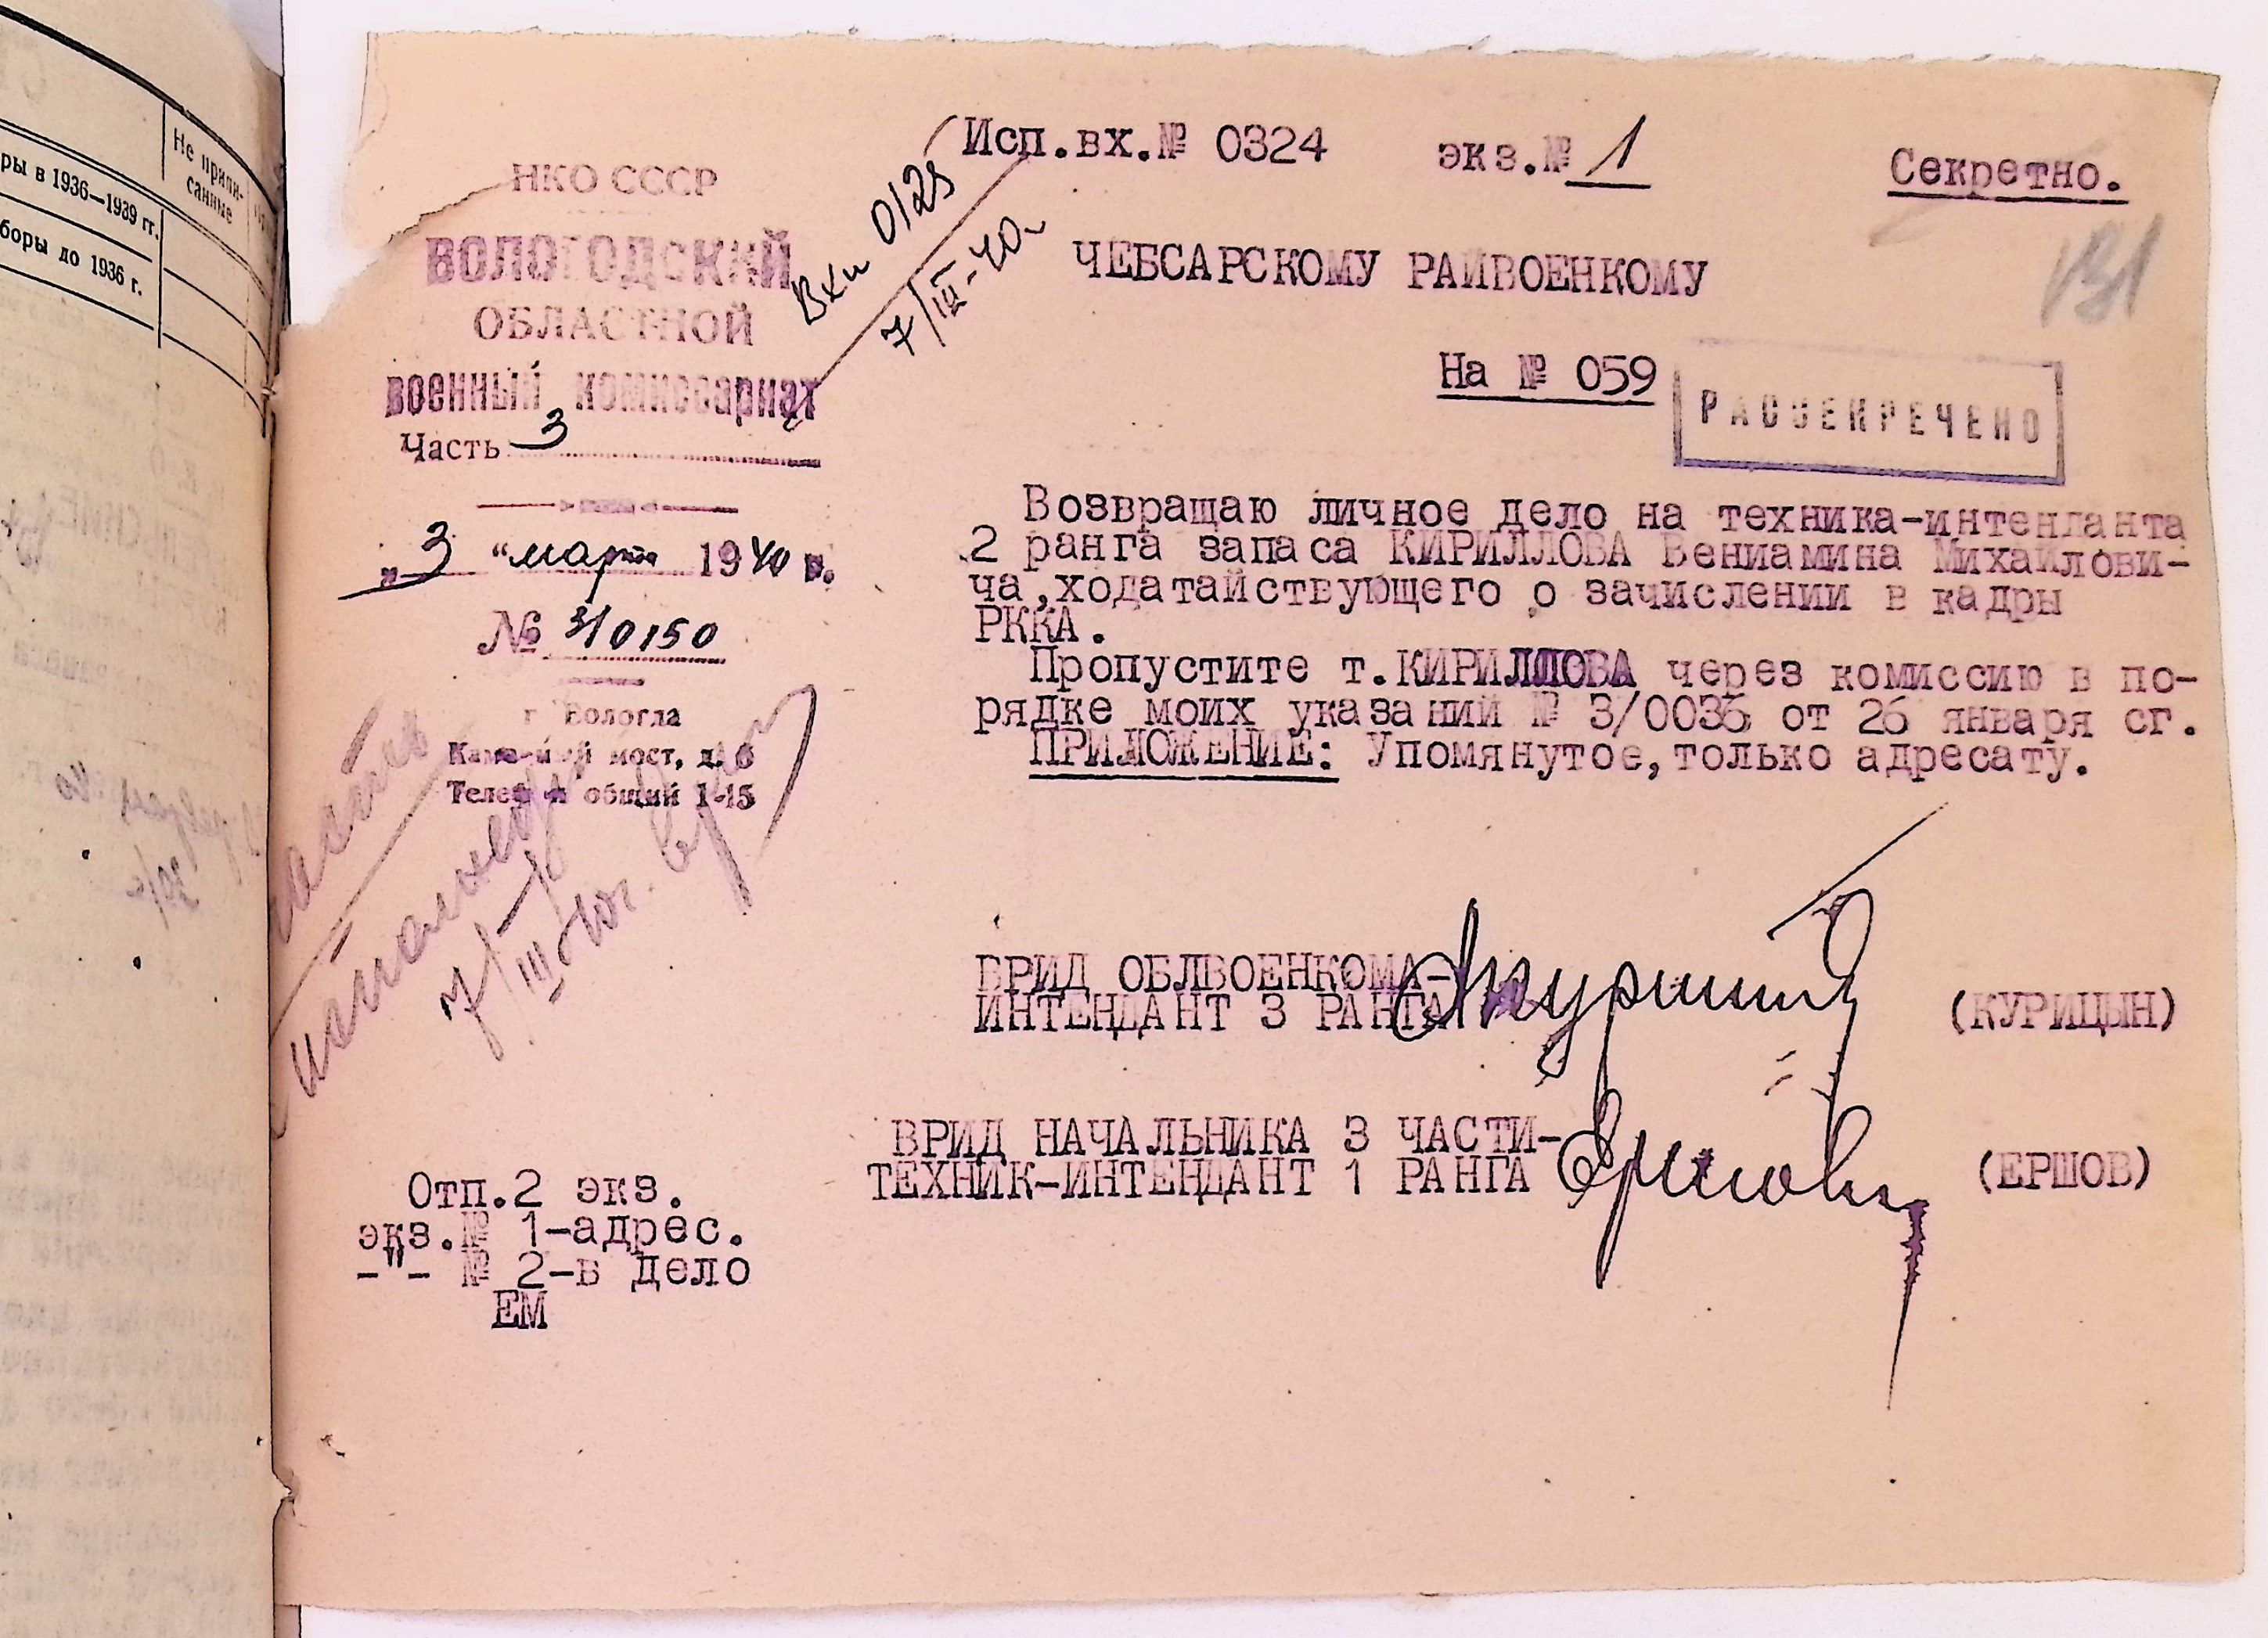 ры в 1936—1939 гг.
боры до 1936 г.
Не припи-
санные
Исп.вх.№ 0324 экз.№ 1 Секретно.
НКО СССР
ВОЛОГОДСКИЙ
ОБЛАСТНОЙ
военный комиссариат
Часть 3
„3 “ марта 1940 г.
№ 3/0150
г Вологда
Каменный мост, д. 6
Телефон общий 1-15
7/III-40г
ЧЕБСАРСКОМУ РАЙВОЕНКОМУ
131
На № 059
РАССЕКРЕЧЕНО
Возвращаю личное дело на техника-интенданта
2 ранга запаса КИРИЛЛОВА Вениамина Михайлови-
ча,ходатайствующего о зачислении в кадры
РККА.
Пропустите т.КИРИЛЛОВА через комиссию в по-
рядке моих указаний № 3/0036 от 26 января сг.
ПРИЛОЖЕНИЕ: Упомянутое,только адресату.
7/III-40г.
ВРИД ОБЛВОЕНКОМА-
ИНТЕНДАНТ 3 РАНГА (КУРИЦЫН)
ВРИД НАЧАЛЬНИКА 3 ЧАСТИ-
ТЕХНИК-ИНТЕНДАНТ 1 РАНГА Ершов (ЕРШОВ)
Отп.2 экз.
экз.№ 1-адрес.
-"- № 2-в дело
ЕМ